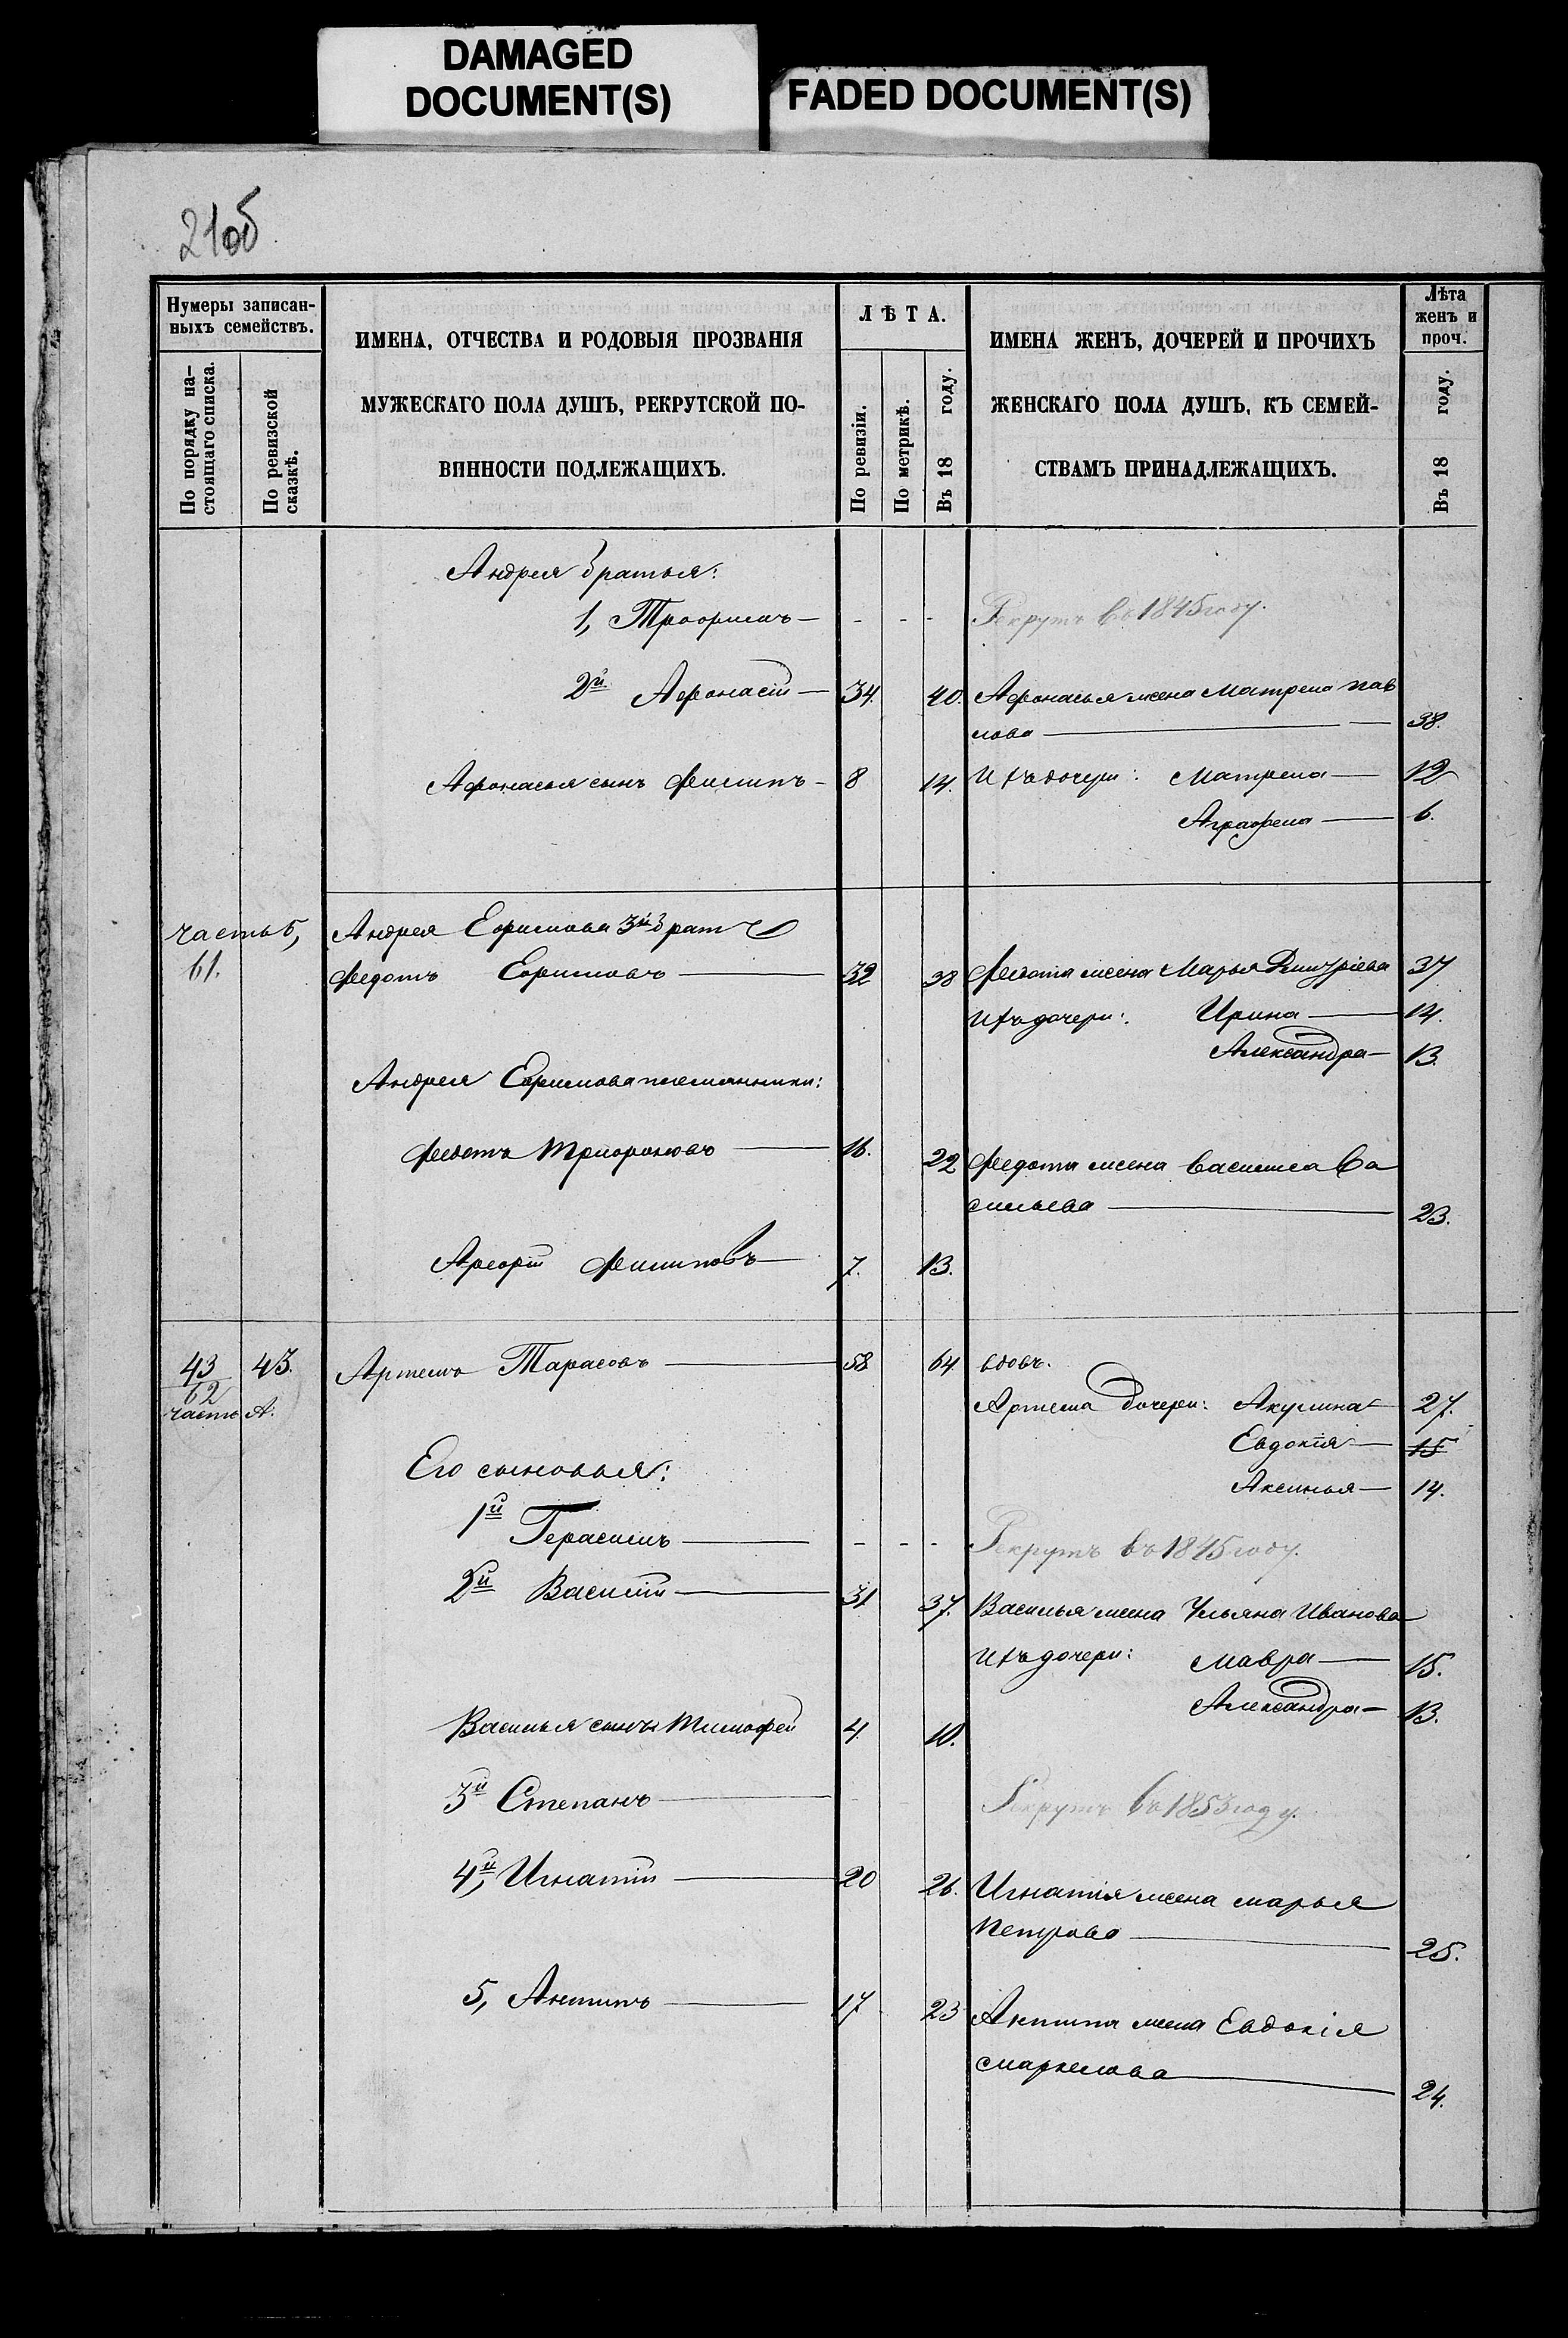 DAMAGED
DOCUMENT(S)
FADED DOCUMENT(S)
21об
Нумеры записан-
ныхъ семействъ.
По порядку на-
стоящаго списка.
По ревизской
сказкѣ.
ИМЕНА, ОТЧЕСТВА И РОДОВЫЯ ПРОЗВАНІЯ
МУЖЕСКАГО ПОЛА ДУШЪ, РЕКРУТСКОЙ ПО-
ВИННОСТИ ПОДЛЕЖАЩИХЪ.
ЛѢТА.
По ревизіи.
По метрикѣ.
Въ 18 году.
ИМЕНА ЖЕНЪ, ДОЧЕРЕЙ И ПРОЧИХЪ
ЖЕНСКАГО ПОЛА ДУШЪ, КЪ СЕМЕЙ-
СТВАМЪ ПРИНАДЛЕЖАЩИХЪ.
Лѣта
женъ и
проч.
Въ 18 году.
Андрея братья:
1, - - - Рекрутъ въ 1845 году.
2й Афонасій — 34. 40. Афонасья жена Матрена Пав
лова — 38.
Афонасья сынъ Филипъ — 8 14. Ихъ дочери: Матрена — 12
Аграфена — 6.
часть б, Андрея Ефимова 3й брат
61. Федотъ Ефимовъ — 32 38 Федота жена Марья Дмитріева 37
Ихъ дочери: Ирина — 14.
Александра — 13.
Андрея Ефимова племянники:
Федотъ Трифоновъ — 16. 22 Федота жена Василиса Ва
сильева — 23.
Арефій Филиповъ — 7. 13.
43 43. Артемъ Тарасовъ — 58 64 вдовъ.
62
часть А. Артема дочери: Акулина — 27.
Евдокія — 15
Его сыновья:
Аксинья — 14.
1й Герасимъ — - - - Рекрутъ въ 1845 году.
2й Василій — 31 37. Василья жена Ульяна Иванова
Ихъ дочери: Мавра — 15.
Александра — 13.
Василья сынъ Тимофей 4 10.
3й Степанъ — Рекрутъ въ 1853 году.
4й, Игнатій — 20 26. Игнатія жена Марья
Петрова — 25.
5, Антипъ — 17 23 Антипа жена Евдокія
Маркелова — 24.